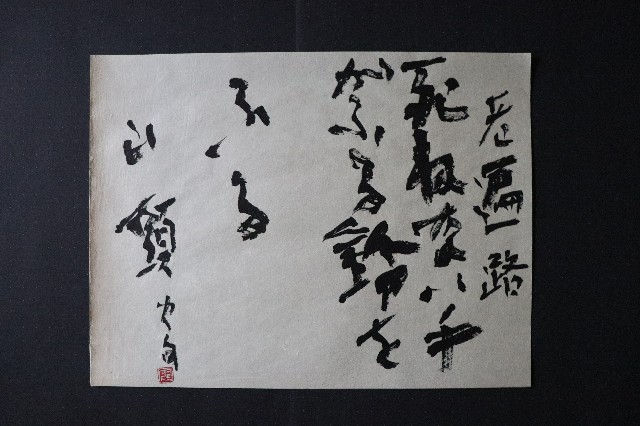 老遍路
死ねない手
がふる鈴を
ふる
山頭火句